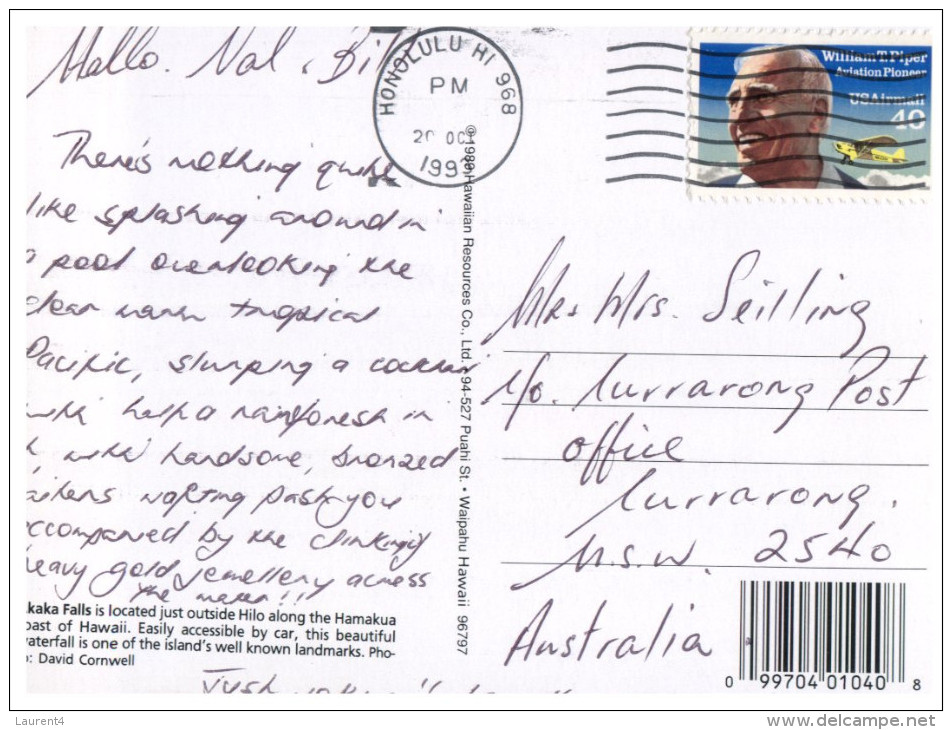 Hallo. Nal, Bil
There's nothing quite
like splashing around in
a pool overlooking the
clear warm tropical
Pacific, slurping a cocktail
with half a rainforest in
it, with handsome, bronzed
waiters wafting past you
accompanied by the clinking of
heavy gold jewellery across
the water!!
kaka Falls is located just outside Hilo along the Hamakua
oast of Hawaii. Easily accessible by car, this beautiful
vaterfall is one of the island's well known landmarks. Pho-
o: David Cornwell
Just
© 1989 Hawaiian Resources Co., Ltd. 94-527 Puahi St. • Waipahu Hawaii 96797
HONOLULU HI 968
PM
20 OC
199
William T. Piper
Aviation Pioneer
USAirmail
40
Mr & Mrs. Seilling
c/o. Currarong Post
office
Currarong.
N.S.W. 2540
Australia
0 99704 01040 8
Laurent4
delcampe.net